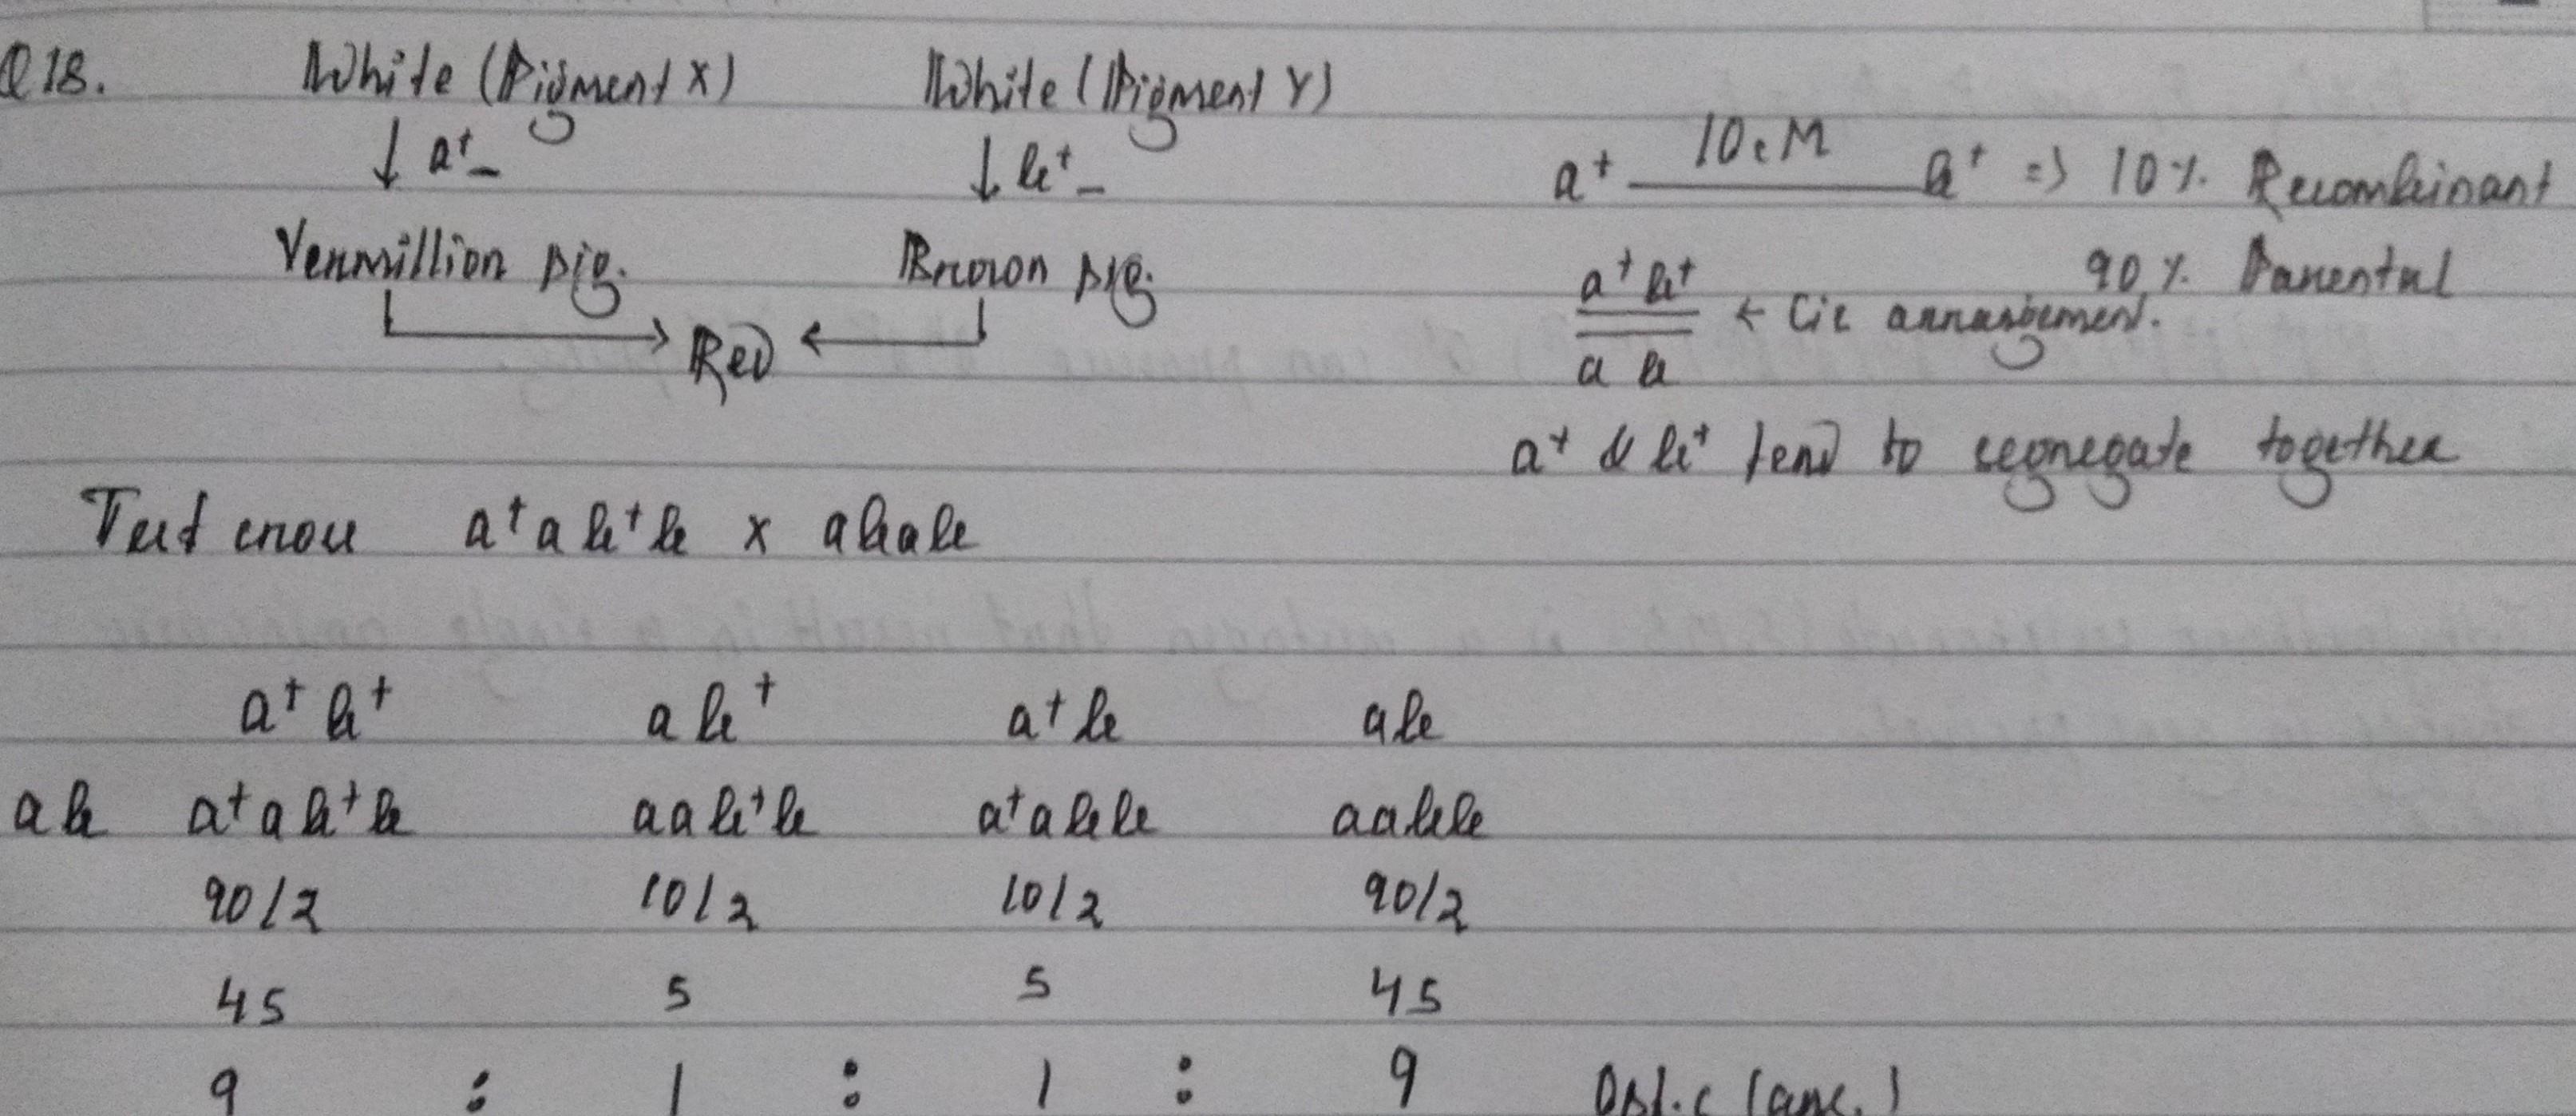 Q18. White (Pigment X) White (Pigment Y)
↓ a⁺_ ↓ b⁺_
a⁺ 10cM b⁺ => 10% Recombinant
Vermillion pig. Brown pig. 90% Parental
Red
a⁺ b⁺
a b
← Cis arrangement.
a⁺ & b⁺ tend to segregate together
Test cross a⁺a b⁺b x abab
a⁺b⁺ ab⁺ a⁺b ab
ab a⁺ab⁺b aab⁺b a⁺abb aabb
90/2 10/2 10/2 90/2
45 5 5 45
9 : 1 : 1 : 9 Opt. c (ans.)